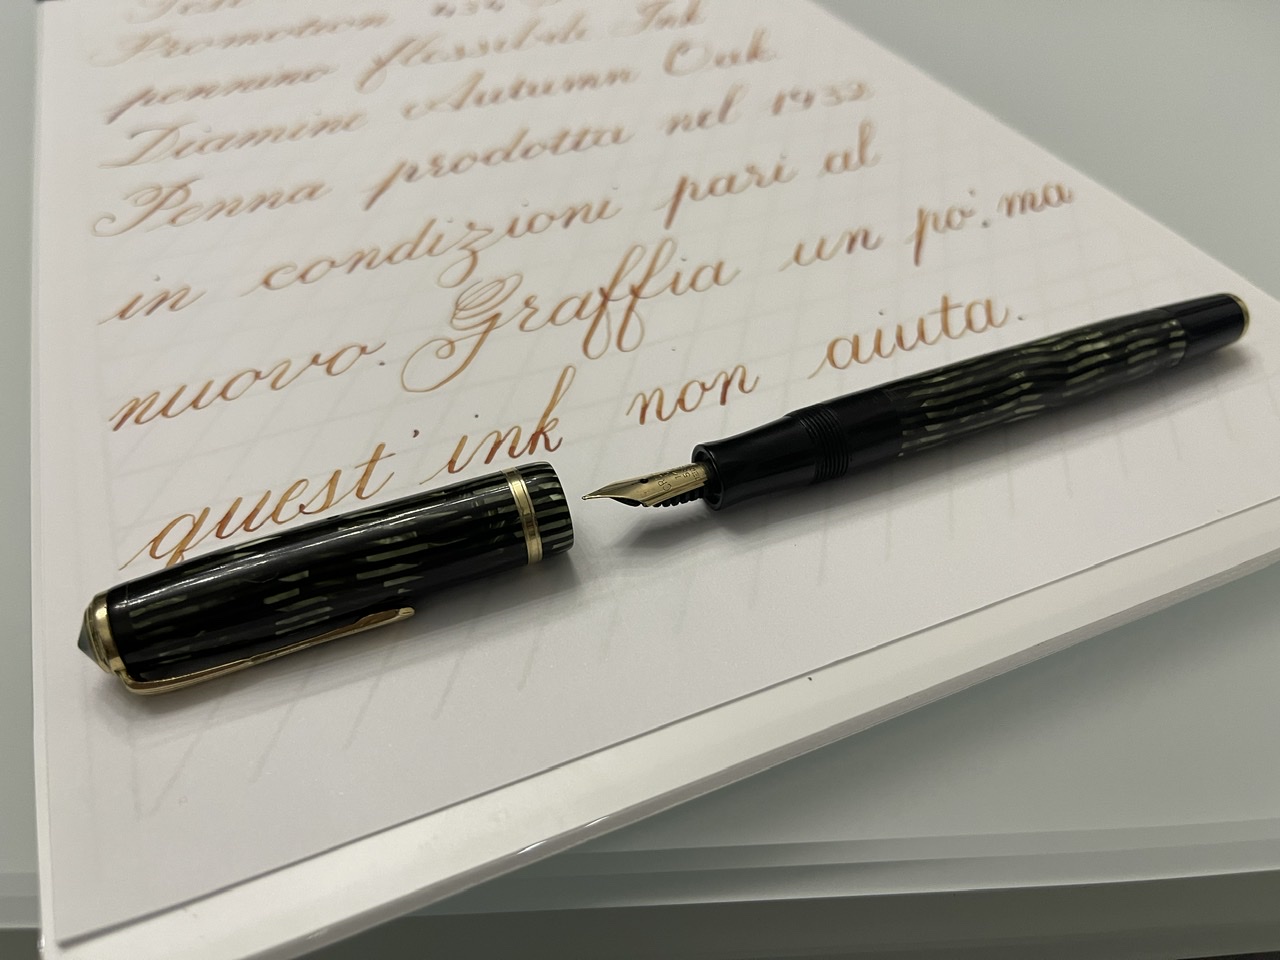 Promotion
pennino flessibile Ink
Diamine Autumn Oak
Penna prodotta nel 1932
in condizioni pari al
nuovo. Graffia un po'. ma
quest' ink non aiuta.